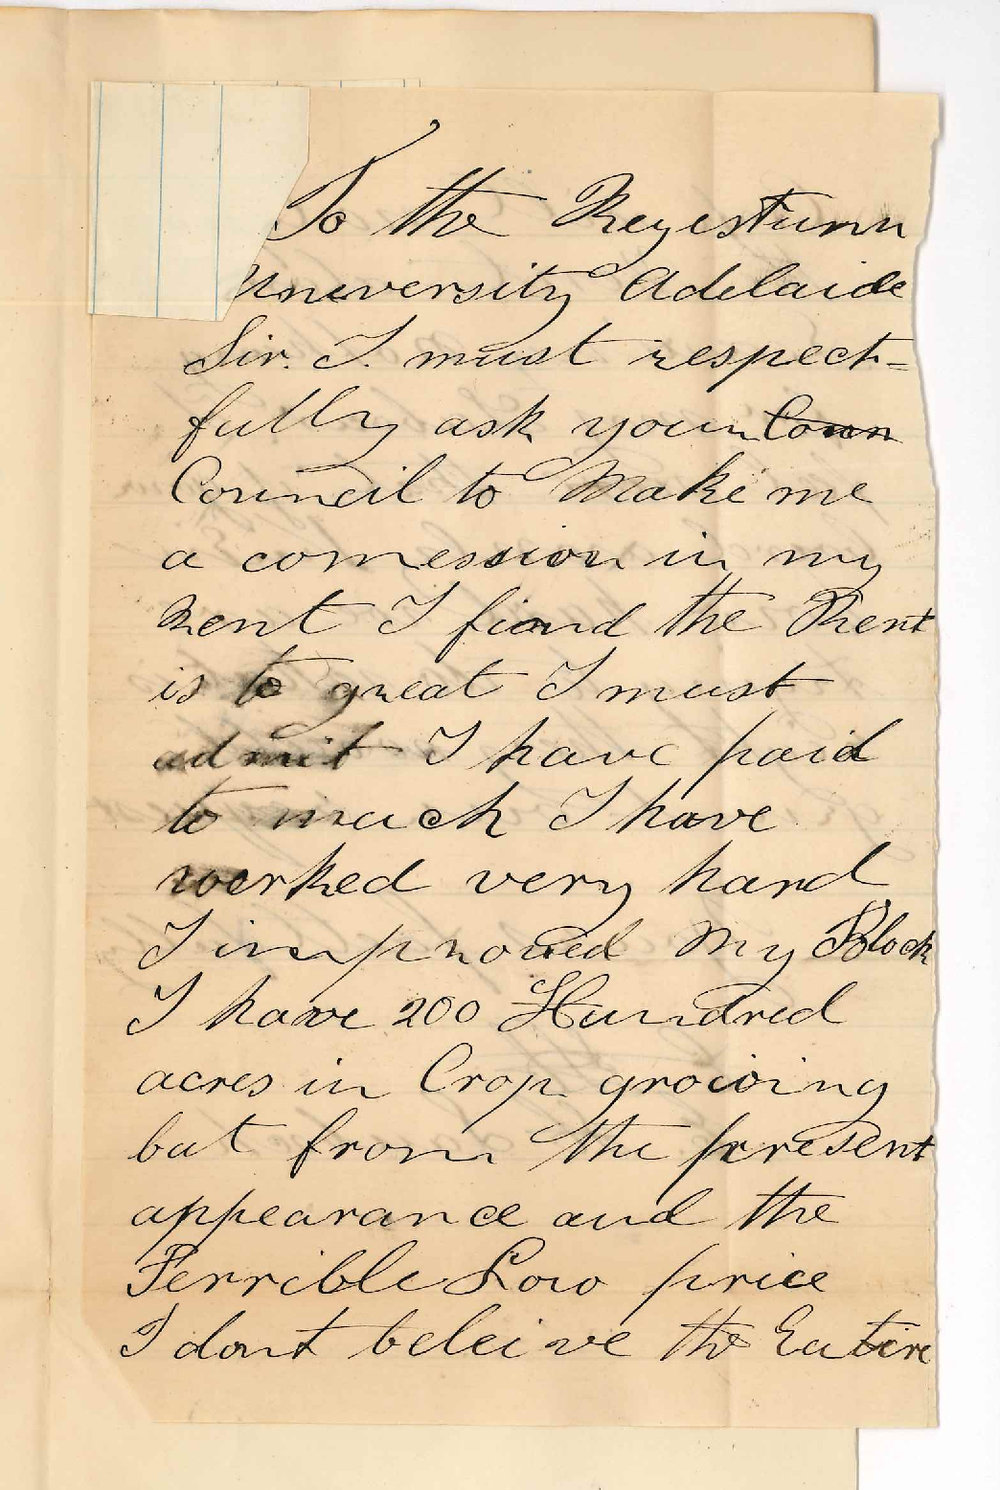 To the Regesturur
University Adelaide
Sir. I. must respect=
fully ask your Coun
Council to Make me
a comession in my
Rent I fiand the Rent
is to great I must
admit I have paid
to much I have
worked very hard
I improved My Block
I have 200 Hundred
acres in Crop growing
but from the present
appearance and the
Terrible Low price
I dont beleive the Entire